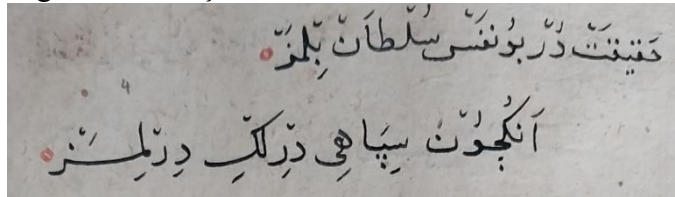 حَقيقَتْ دُرْ بُو نَفَسْ سُلْطاَنْ بِلْمَزْ
4
اَنُكْچُونْ سِپَاهِی دِرْلِكِ دِرِلْمَزْ